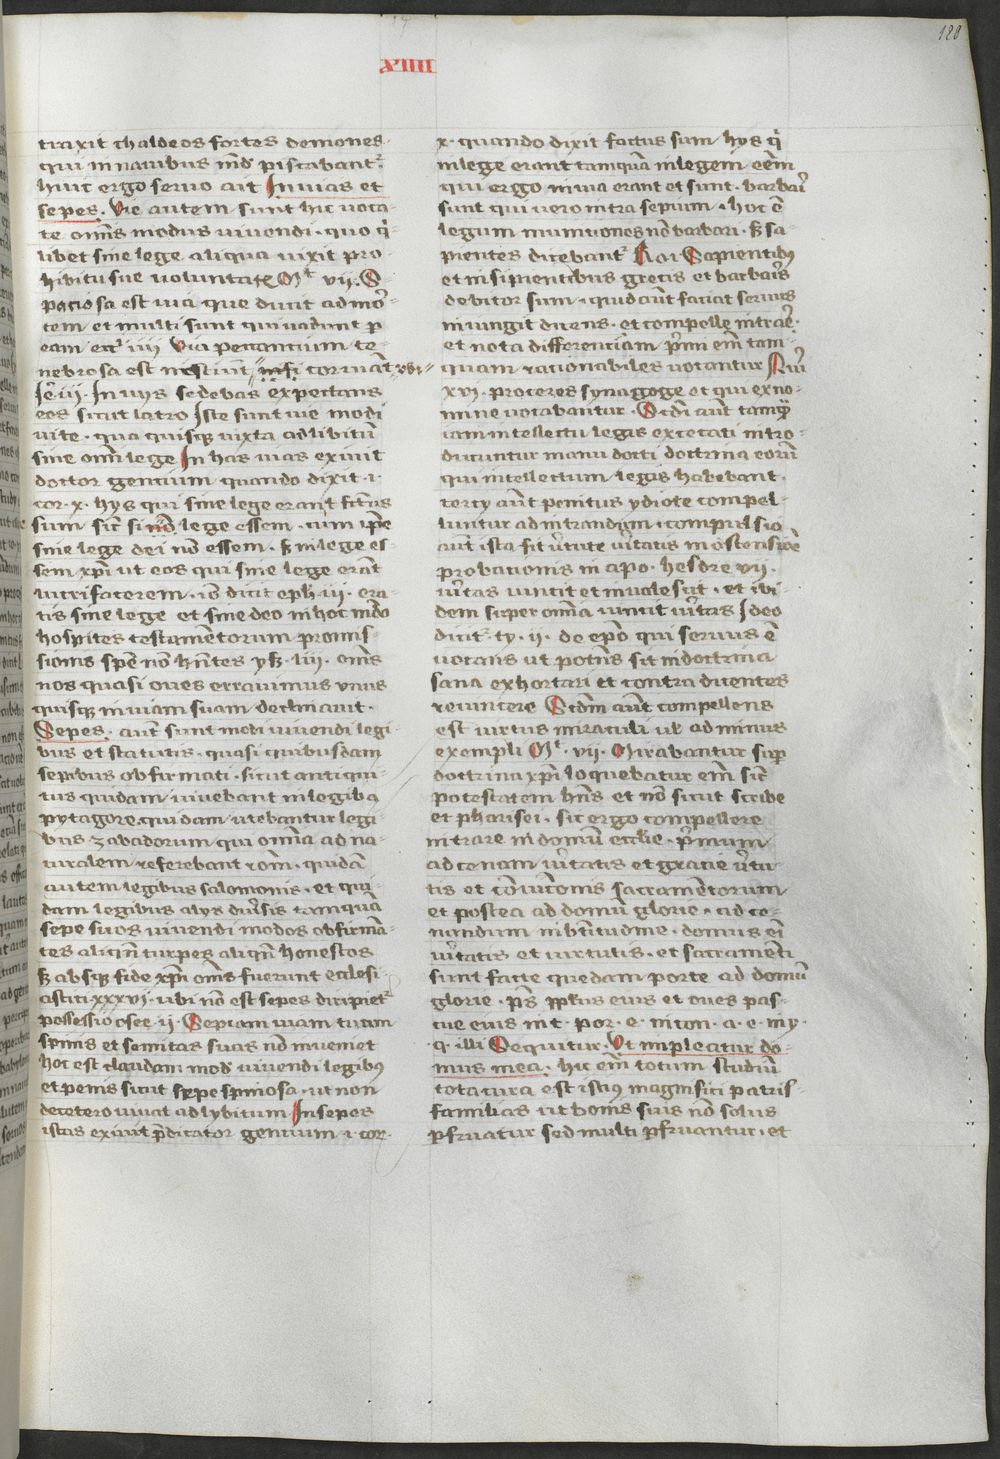 120
XIIII
traxit chaldeos fortes demones
qui in navibus mõd piscabantr
huic ergo servo ait In vias et
sepes. Vie autem sunt hic voca
te omẽs modus vivendi. quo qͥ
libet sine lege aliqua vixit pro
hibitu sue voluntatꝭ Mt vii. S
paciosa est via que ducit ad mor
tem et multi sunt qui vadunt p
eam etcr iiii Via peccantium te
nebrosa est nesciunt
Ie iii. In viis sedebas expectans
eos sicut latro Iste sunt vie modi
vite. qua quisqꝫ vixit ad libitũ
sine omi lege In has vias exivit
doctor gentium quando dixit .i.
cor. x. hys qui sine lege erant factus
sum sict si nõ lege essem. cum ipse
sine lege dei nõ essem. sꝫ in lege es
sem xpi ut eos qui sine lege erãt
lucrifacerem. iõ dicit eph iii. era
tis sine lege et sine deo in hoc mũdo
hospites testamẽtorum promis
sionis spẽ nõ hñtes ysꝫ. liii. omẽs
nos quasi oves erravimus unus
quisqꝫ in viam suam declinavit.
Sepes. autt sunt modi vivendi legi
bus et statutis. quasi quibusdam
sepibus obfirmati. sicut antiqui
tus quidam vivebant in legibꝯ
pytagore. quidam utebantur legi
bus zabadorum qui omia ad na
turalem referebant rõm. quidã
autem legibus salomonis. et qui
dam legibus alys divsis tamquã
sepe suos vivendi modos obfirmã
tes aliqñ turpes aliqñ honestos
sꝫ absqꝫ fide xpi omẽs fuerunt ecclesi
astici xxxvi. ubi nõ est sepes diripietr
possessio osee .ii. Sepiam viam tuam
spinis et semitas suas nõ inveniet
hoc est claudam modũ vivendi legibus
et penis sicut sepe spinosa. ut non
de cetero vivat ad lybitum In sepes
istas exivit pdicator gentium .i. cor.
x. quando dixit factus sum. hys qͥ
in lege erant tamquã in legem eẽm
qui ergo in via erant et sunt. barbari
sunt qui vero intra sepium. hoc ẽ
legum municiones nõ barbari. sꝫ sa
pientes dicebantr Sapientibꝯ
et insipientibus grecis et barbaris
debitor sum. quid autt faciat servus
iniungit dicens. et compelle intrare.
et nota differenciam. primi em tam
quam racionabiles vocantur
xvi. proceres synagoge et qui ex no
mine vocabantur. Scdi autt tamqͣ
iam intellectu legis excecati intro
ducuntur manu docti doctrina eorũ
qui intellectum legis habebant.
tercy autt penitus ydiote compel
luntur ad intrandum. compulsio
autt ista fit vtute vitatis in ostensione
probationis in apo. hesdre vii.
vitas vincit et invalescit. et ibi
dem super omia vincit vitas Ideo
dicitr ty. ii. de epõ qui servus ẽ
vocans ut potens sit in doctrina
sana exhortari et contradicentes
revincere Scdm autt compellens
est virtus miraculi ul ad minus
exempli Mt. vii. Mirabantur sup
doctrina xpi loquebatur em sict
potestatem hñs et nõ sicut scribe
et pharisei. sic ergo compellere
intrare in domũ ecclie. primum
ad cenam vitatis et gracie vtu
tis et sacramẽtorum
et postea ad domũ glorie. ad ce
nandum in btitudine. domus em
vitatis et virtutis. et sacramẽti
sunt facte quedam porte ad domũ
glorie. ps pplus eius et oves pas
cue eius int. por. e. in con. a. e. in y.
q. illi Sequitur. Vt impleatur do
mus mea. hic em totum studiũ
tota cura est istius magnifici patris
familias ut bonis suis nõ solus
pfruatur sed multi pfruantur. et